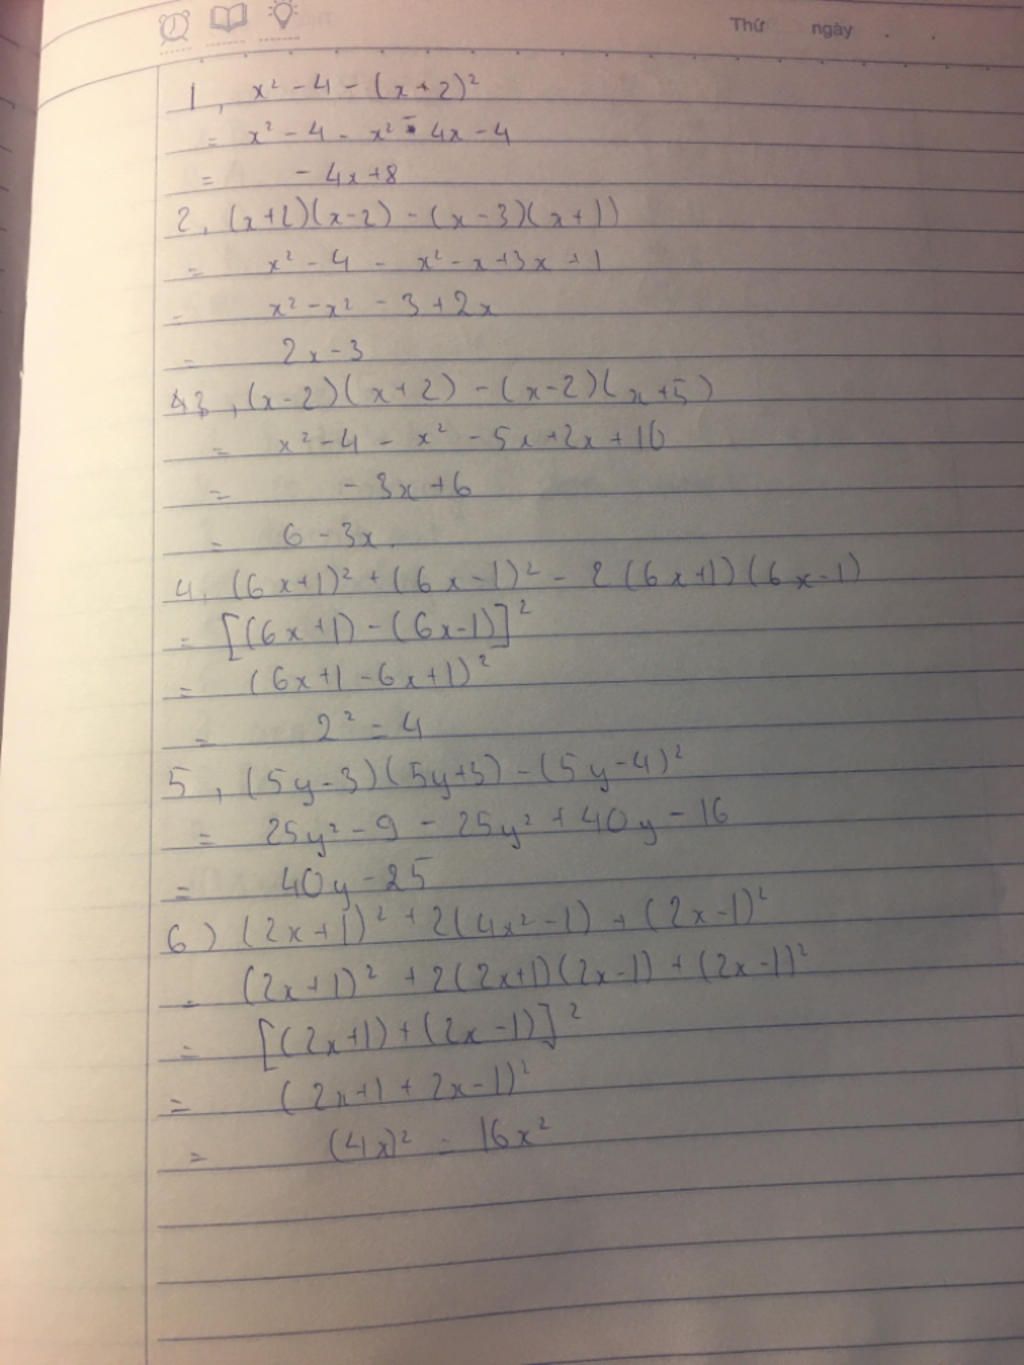 Thứ ngày . .
1, x² - 4 - (x + 2)²
= x² - 4 - x² - 4x - 4
= - 4x + 8
2, (x+2)(x-2) - (x-3)(x+1)
= x² - 4 - x² - x + 3x + 1
= x² - x² - 3 + 2x
= 2x - 3
3, (x-2)(x+2) - (x-2)(x+5)
= x² - 4 - x² - 5x + 2x + 10
= - 3x + 6
= 6 - 3x.
4, (6x+1)² + (6x-1)² - 2(6x+1)(6x-1)
= [(6x+1) - (6x-1)]²
= (6x+1 - 6x+1)²
= 2² = 4
5, (5y-3)(5y+3) - (5y-4)²
= 25y² - 9 - 25y² + 40y - 16
= 40y - 25
6) (2x+1)² + 2(4x²-1) + (2x-1)²
= (2x+1)² + 2(2x+1)(2x-1) + (2x-1)²
= [(2x+1) + (2x-1)]²
= (2x+1 + 2x-1)²
= (4x)² = 16x²